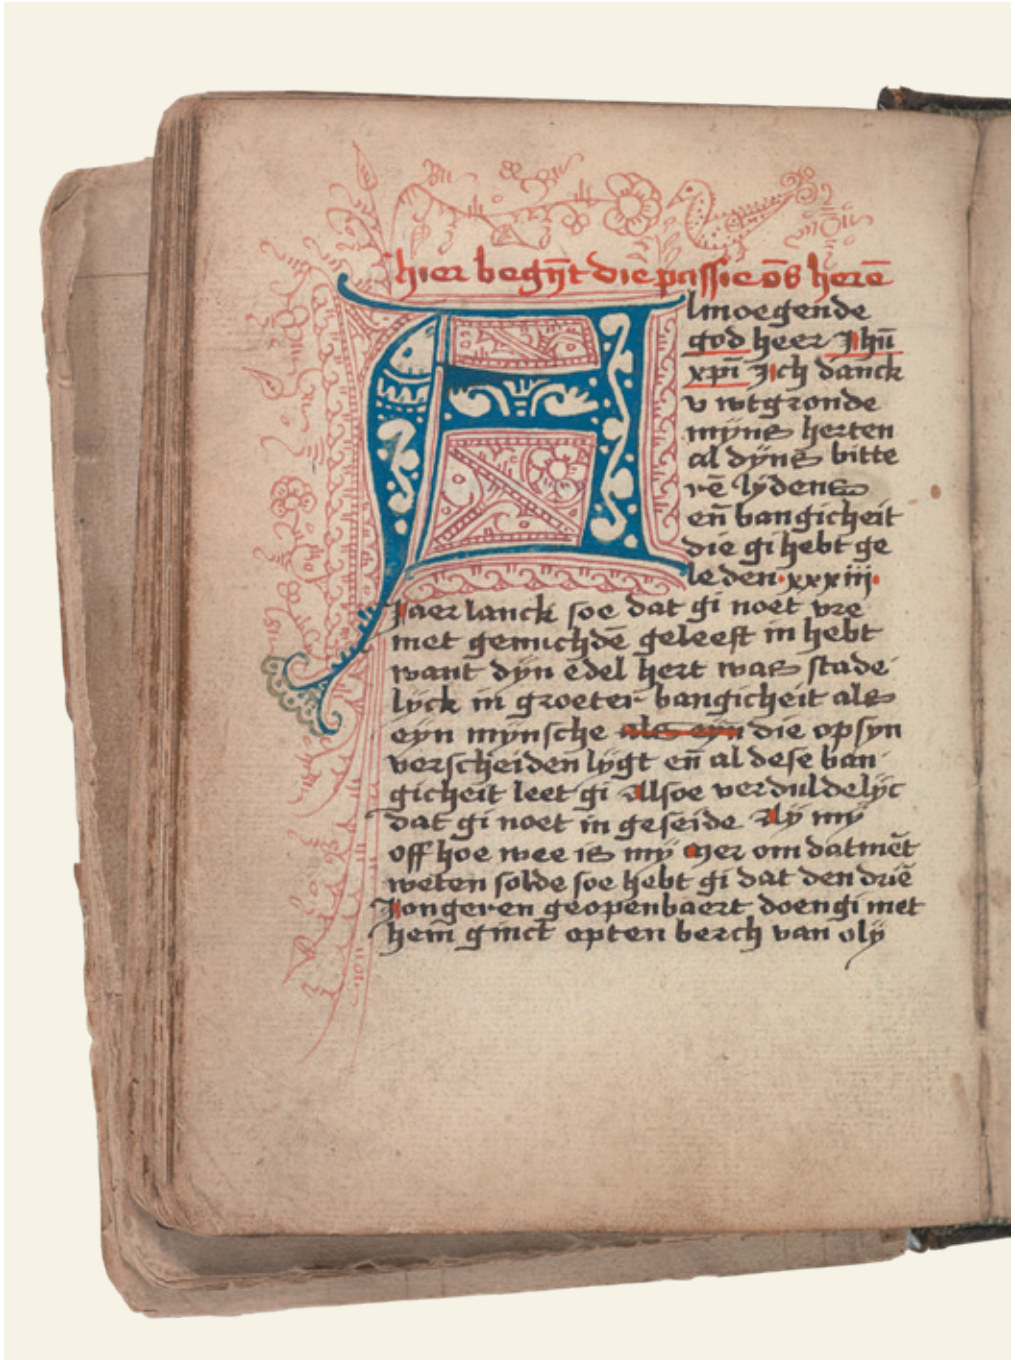 hier begȳt die passie ōs herē
Almoegende
god heer Jhū
xpī Jch danck
v wtgronde
mÿns herten
al dÿns bitte
rē lÿdens
en̄ bangicheit
die gi hebt ge
leden·xxxiij·
Jaer lanck soe dat gi noet vre
met genuchdē geleeft in hebt
want dÿn edel hert was stade
lÿck in groeter bangicheit als
eÿn mÿnsche als eÿn die opsyn
verscheiden lÿgt en̄ al dese ban
gicheit leet gi Allsoe verduldelÿc
dat gi noet in geseide Aÿ mÿ
off hoe wee is mÿ Mer om datmēt
weten solde soe hebt gi dat den driē
Jongeren geopenbaert doengi met
hem ginct opten berch van olÿ